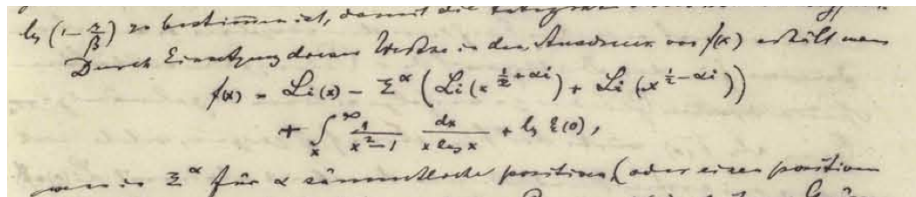 lg (1 - α/β) zu bestimmen ist, damit die
Durch Einsetzung dieser Werthe in den Ausdruck von f(x) erhält man
f(x) = Li(x) - Σ^α (Li(x^{½+αi}) + Li(x^{½-αi}))
+ ∫_x^∞ 1/(x²-1) dx/(x log x) + lg ξ(0),
wenn in Σ^α für α sämmtliche positiven (oder einen positiven